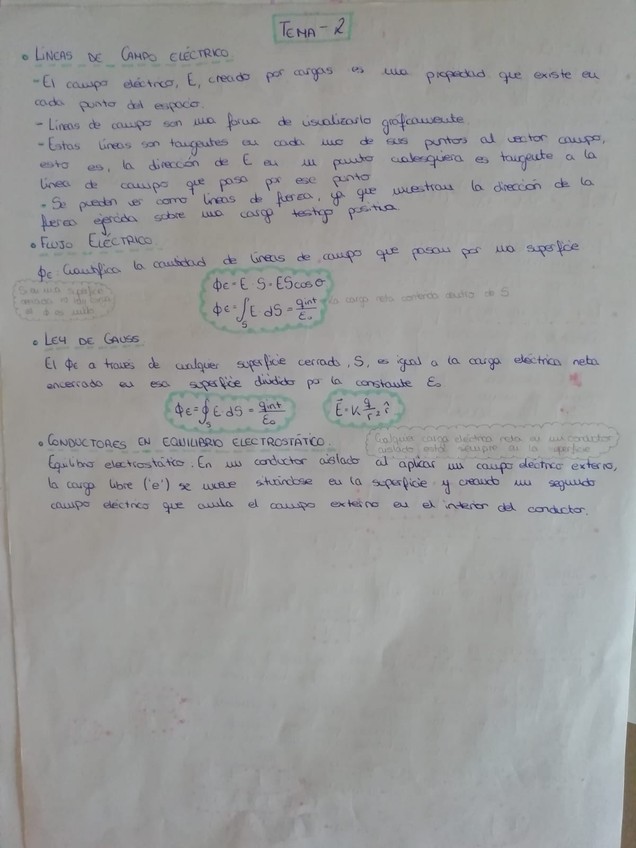 TEMA-2
• LÍNEAS DE CAMPO ELÉCTRICO
- El campo eléctrico, E, creado por cargas es una propiedad que existe en
cada punto del espacio.
- Líneas de campo son una forma de visualizarlo gráficamente.
- Estas líneas son tangentes en cada uno de sus puntos al vector campo,
esto es, la dirección de E en un punto cualesquiera es tangente a la
línea de campo que pasa por ese punto
- Se pueden ver como líneas de fuerza, ya que muestran la dirección de la
fuerza ejercida sobre una carga testigo positiva
• FLUJO ELÉCTRICO
ϕε Cuantifica la cantidad de líneas de campo que pasan por una superficie
ϕε = E S = E S cos θ
Si una superficie
cerrada
el ϕ es nulo
ϕε = ∫s E dS = qint/ε₀ la carga neta contenida dentro de S
• LEY DE GAUSS
El ϕε a través de cualquier superficie cerrado, S, es igual a la carga eléctrica neta
encerrado en esa superficie dividido por la constante ε₀
ϕε = ∮s E dS = qint/ε₀ E⃗ = K q/r² r̂
• CONDUCTORES EN EQUILIBRIO ELECTROSTÁTICO
Cualquier carga eléctrica neta en un conductor
aislado estás siempre en la superficie
Equilibrio electrostático. En un conductor aislado al aplicar un campo eléctrico externo,
la carga libre ('e') se mueve situándose en la superficie y creando un segundo
campo eléctrico que anula el campo externo en el interior del conductor.